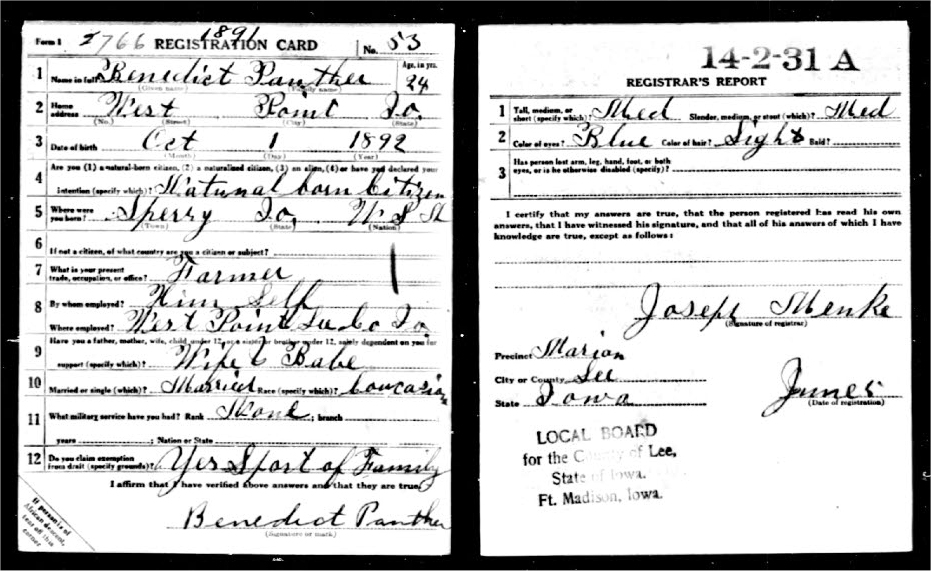 1891
Form 1 2766 REGISTRATION CARD No. 53
1 Name in full Benedict Panther Age, in yrs. 24
(Given name) (Family name)
2 Home address West Point Io.
(No.) (Street) (City) (State)
3 Date of birth Oct 1 1892
(Month) (Day) (Year)
4 Are you (1) a natural-born citizen, (2) a naturalized citizen, (3) an alien, (4) or have you declared your
intention (specify which)? Natural born Citizen
5 Where were you born? Sperry Io. U S A
(Town) (State) (Nation)
6 If not a citizen, of what country are you a citizen or subject?
7 What is your present trade, occupation, or office? Farmer
8 By whom employed? Him Self
Where employed? West Point Lee Co Io.
9 Have you a father, mother, wife, child under 12, or a sister or brother under 12, solely dependent on you for
support (specify which)? Wife & Babe
10 Married or single (which)? Married Race (specify which)? Caucasian
11 What military service have you had? Rank None ; branch
years ; Nation or State
12 Do you claim exemption from draft (specify grounds)? Yes Sport of Family
I affirm that I have verified above answers and that they are true.
Benedict Panther
(Signature or mark)
If person is of
African descent,
tear off this
corner
14-2-31 A
REGISTRAR'S REPORT
1 Tall, medium, or short (specify which)? Med Slender, medium, or stout (which)? Med
2 Color of eyes? Blue Color of hair? Light Bald?
3 Has person lost arm, leg, hand, foot, or both
eyes, or is he otherwise disabled (specify)?
I certify that my answers are true, that the person registered has read his own
answers, that I have witnessed his signature, and that all of his answers of which I have
knowledge are true, except as follows:
Joseph Menke
(Signature of registrar)
Precinct Marion
City or County Lee
State Iowa
June 5
(Date of registration)
LOCAL BOARD
for the County of Lee,
State of Iowa.
Ft. Madison, Iowa.